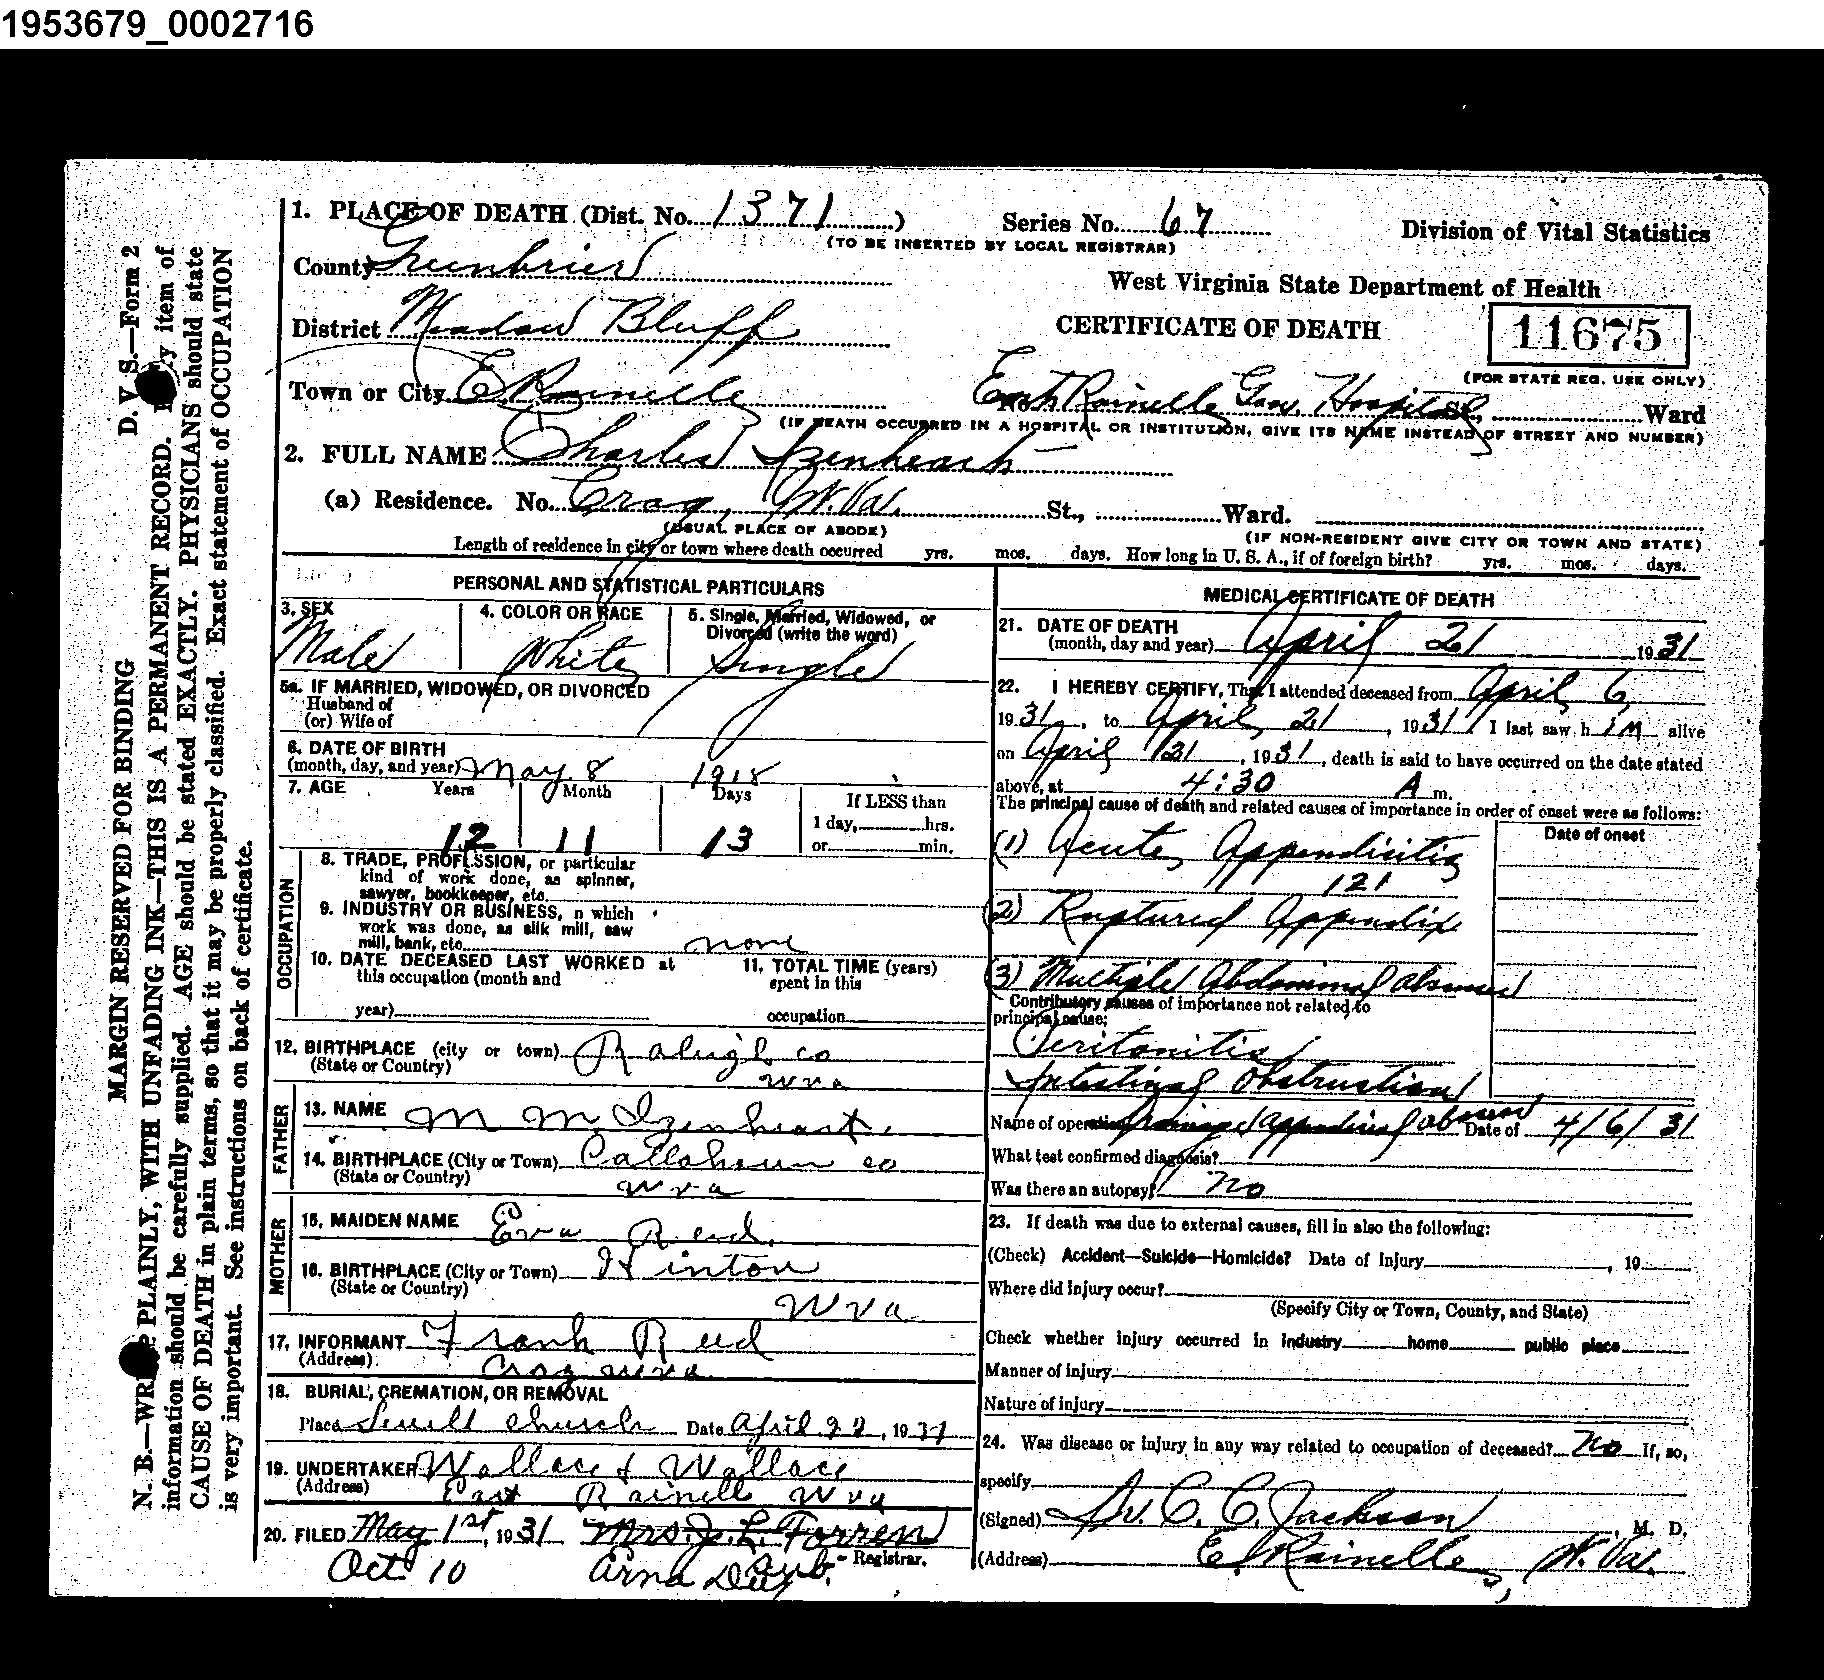 1953679_0002716
1. PLACE OF DEATH (Dist. No. 1371 )
Series No. 67
(TO BE INSERTED BY LOCAL REGISTRAR)
Division of Vital Statistics
County Greenbrier
West Virginia State Department of Health
District Meadow Bluff
CERTIFICATE OF DEATH
11675
(FOR STATE REG. USE ONLY)
Town or City E Rainelle
No. East Rainelle Gen. Hospital St., Ward
(IF DEATH OCCURRED IN A HOSPITAL OR INSTITUTION, GIVE ITS NAME INSTEAD OF STREET AND NUMBER)
2. FULL NAME Charles Izenheart
(a) Residence. No. Crag, W. Va. St., Ward.
(USUAL PLACE OF ABODE)
(IF NON-RESIDENT GIVE CITY OR TOWN AND STATE)
Length of residence in city or town where death occurred yrs. mos. days. How long in U. S. A., if of foreign birth? yrs. mos. days.
PERSONAL AND STATISTICAL PARTICULARS
3. SEX
Male
4. COLOR OR RACE
White
5. Single, Married, Widowed, or
Divorced (write the word)
Single
5a. IF MARRIED, WIDOWED, OR DIVORCED
Husband of
(or) Wife of
6. DATE OF BIRTH
(month, day, and year) May 8 1918
7. AGE Years Month Days If LESS than
1 day, hrs.
or min.
12 11 13
OCCUPATION
8. TRADE, PROFESSION, or particular
kind of work done, as spinner,
sawyer, bookkeeper, etc.
9. INDUSTRY OR BUSINESS, n which
work was done, as silk mill, saw
mill, bank, etc. none
10. DATE DECEASED LAST WORKED at
this occupation (month and
year)
11. TOTAL TIME (years)
spent in this
occupation
12. BIRTHPLACE (city or town) Raleigh co
(State or Country) W va
FATHER
13. NAME M M Izenheart
14. BIRTHPLACE (City or Town) Callahoun co
(State or Country) W va
MOTHER
15. MAIDEN NAME Eva Reed
16. BIRTHPLACE (City or Town) Hinton
(State or Country) W va
17. INFORMANT Frank Reed
(Address) Crag W va
18. BURIAL, CREMATION, OR REMOVAL
Place Sewell church Date April 22, 1931
19. UNDERTAKER Wallace & Wallace
(Address) East Rainelle W va
20. FILED May 1st, 1931 Mrs. J. L. Farren
Registrar.
Oct 10
MEDICAL CERTIFICATE OF DEATH
21. DATE OF DEATH
(month, day and year) April 21 1931
22. I HEREBY CERTIFY, That I attended deceased from April 6,
1931, to April 21, 1931 I last saw h im alive
on April 21, 1931, death is said to have occurred on the date stated
above, at 4:30 A m.
The principal cause of death and related causes of importance in order of onset were as follows:
Date of onset
(1) Acute Appendicitis
121
(2) Ruptured Appendix
(3) Multiple Abdominal Abscesses
Contributory causes of importance not related to
principal cause:
Peritonitis
Intestinal Obstruction
Name of operation Drainage appendiceal abscess Date of 4/6/31
What test confirmed diagnosis?
Was there an autopsy? No
23. If death was due to external causes, fill in also the following:
(Check) Accident—Suicide—Homicide? Date of Injury , 19
Where did injury occur?
(Specify City or Town, County, and State)
Check whether injury occurred in industry home public place
Manner of injury
Nature of injury
24. Was disease or injury in any way related to occupation of deceased? No If, so,
specify
(Signed) Dr. C. C. Jackson , M. D.
(Address) E. Rainelle, W. Va.
D. V. S.—Form 2
MARGIN RESERVED FOR BINDING
N. B.—WRITE PLAINLY, WITH UNFADING INK—THIS IS A PERMANENT RECORD. Every item of
information should be carefully supplied. AGE should be stated EXACTLY. PHYSICIANS should state
CAUSE OF DEATH in plain terms, so that it may be properly classified. Exact statement of OCCUPATION
is very important. See instructions on back of certificate.